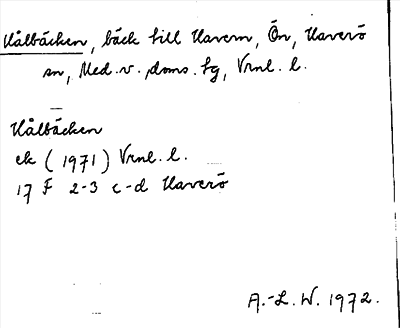 Kålbäcken, bäck till Havern, Ön, Haverö
sn, Med. v. doms. tg, Vrnl. l.
Kålbäcken
ek (1971) Vrnl. l.
17 F 2-3 c-d Haverö
A.-L. W. 1972.